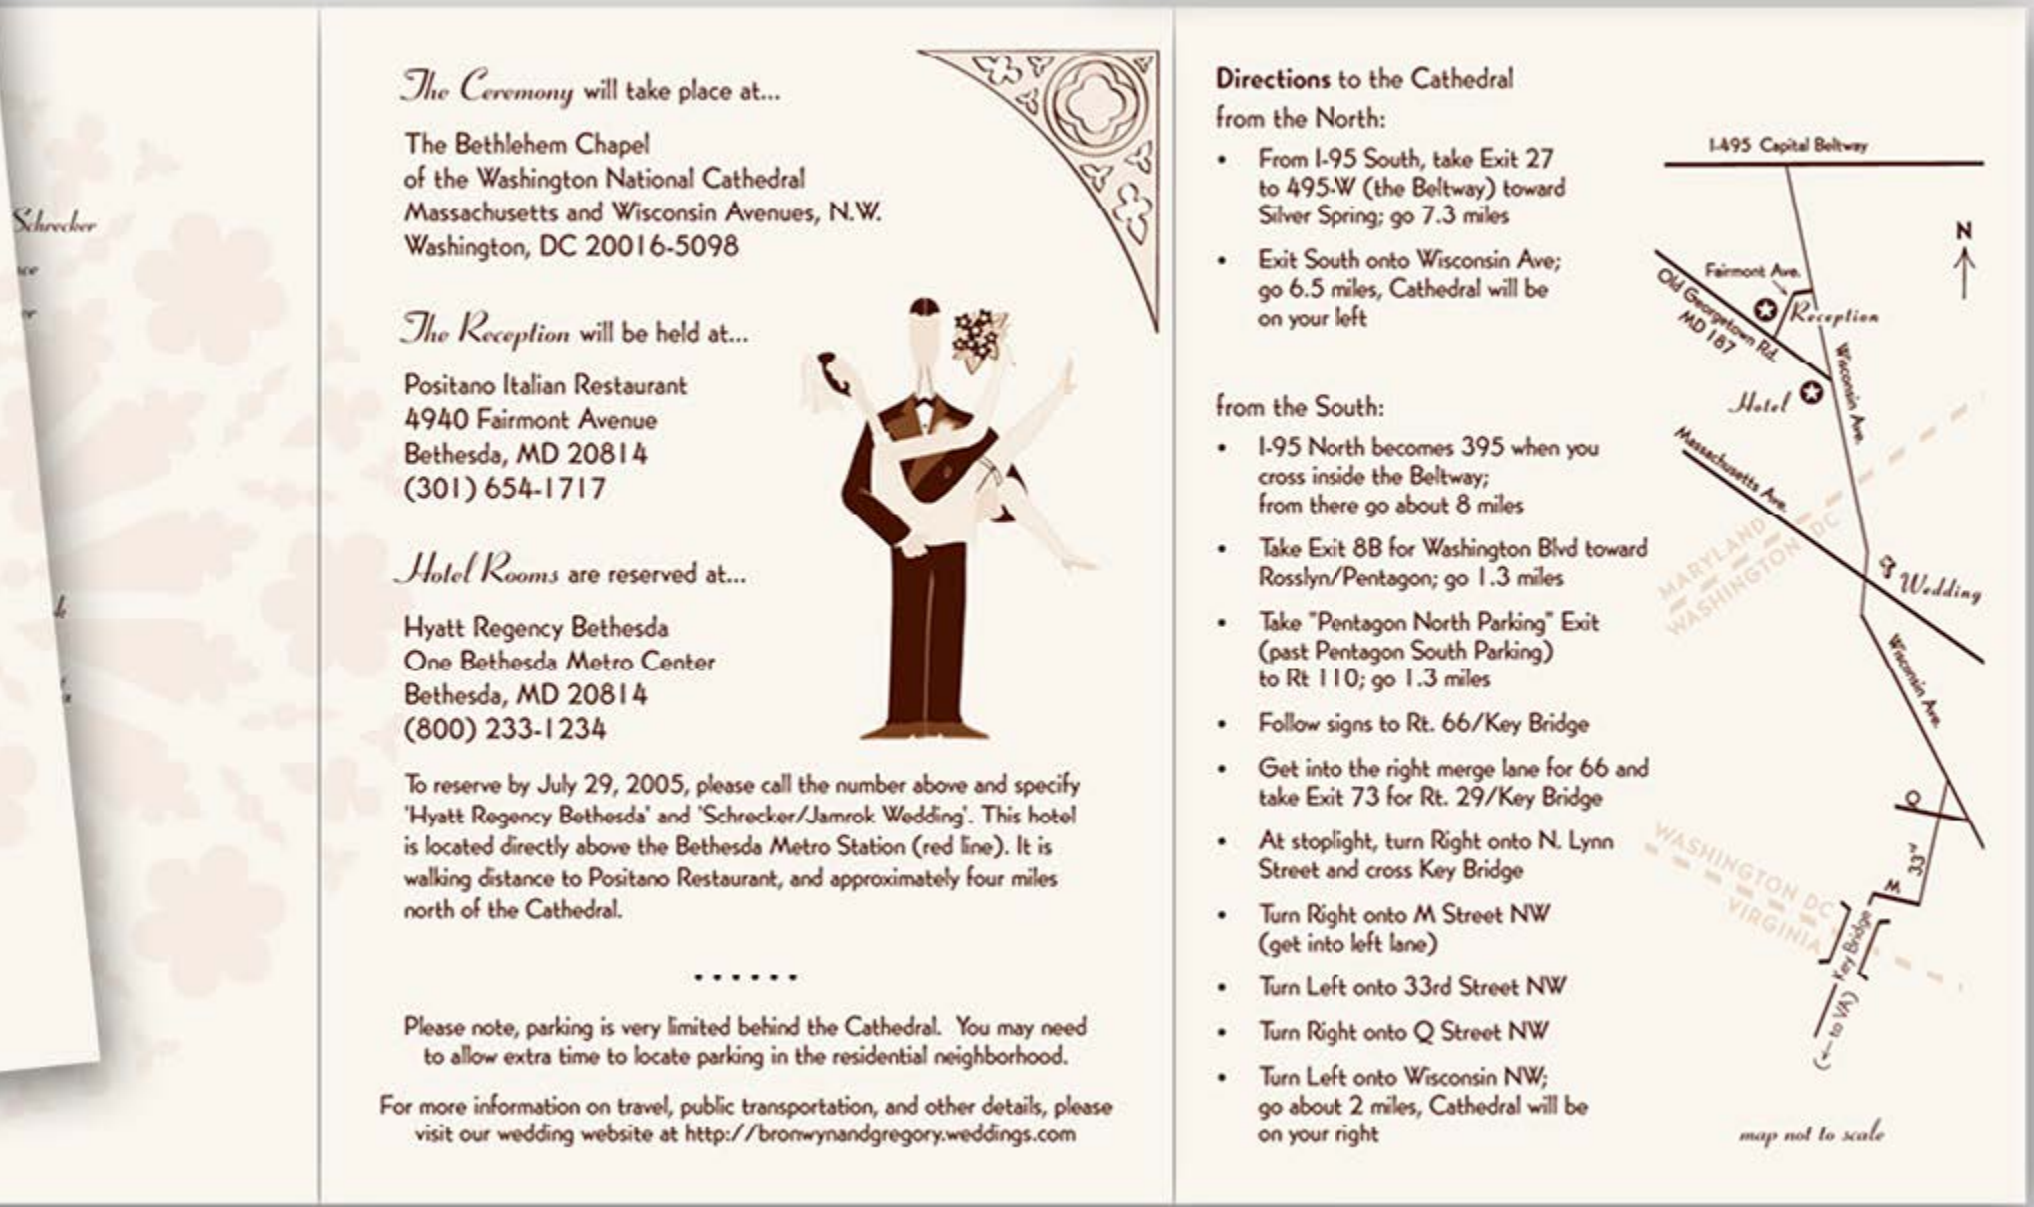 Schrecker
The Ceremony will take place at...
The Bethlehem Chapel
of the Washington National Cathedral
Massachusetts and Wisconsin Avenues, N.W.
Washington, DC 20016-5098
The Reception will be held at...
Positano Italian Restaurant
4940 Fairmont Avenue
Bethesda, MD 20814
(301) 654-1717
Hotel Rooms are reserved at...
Hyatt Regency Bethesda
One Bethesda Metro Center
Bethesda, MD 20814
(800) 233-1234
To reserve by July 29, 2005, please call the number above and specify
'Hyatt Regency Bethesda' and 'Schrecker/Jamrok Wedding'. This hotel
is located directly above the Bethesda Metro Station (red line). It is
walking distance to Positano Restaurant, and approximately four miles
north of the Cathedral.
Please note, parking is very limited behind the Cathedral. You may need
to allow extra time to locate parking in the residential neighborhood.
For more information on travel, public transportation, and other details, please
visit our wedding website at http://bronwynandgregory.weddings.com
Directions to the Cathedral
from the North:
• From I-95 South, take Exit 27
to 495-W (the Beltway) toward
Silver Spring; go 7.3 miles
• Exit South onto Wisconsin Ave;
go 6.5 miles, Cathedral will be
on your left
from the South:
• I-95 North becomes 395 when you
cross inside the Beltway;
from there go about 8 miles
• Take Exit 8B for Washington Blvd toward
Rosslyn/Pentagon; go 1.3 miles
• Take "Pentagon North Parking" Exit
(past Pentagon South Parking)
to Rt 110; go 1.3 miles
• Follow signs to Rt. 66/Key Bridge
• Get into the right merge lane for 66 and
take Exit 73 for Rt. 29/Key Bridge
• At stoplight, turn Right onto N. Lynn
Street and cross Key Bridge
• Turn Right onto M Street NW
(get into left lane)
• Turn Left onto 33rd Street NW
• Turn Right onto Q Street NW
• Turn Left onto Wisconsin NW;
go about 2 miles, Cathedral will be
on your right
I-495 Capital Beltway
N
Fairmont Ave.
Reception
Old Georgetown Rd.
MD 187
Wisconsin Ave.
Hotel
Massachusetts Ave.
MARYLAND
WASHINGTON DC
Wedding
Wisconsin Ave.
Q
33rd
M
WASHINGTON DC
VIRGINIA
Key Bridge
(← to VA)
map not to scale